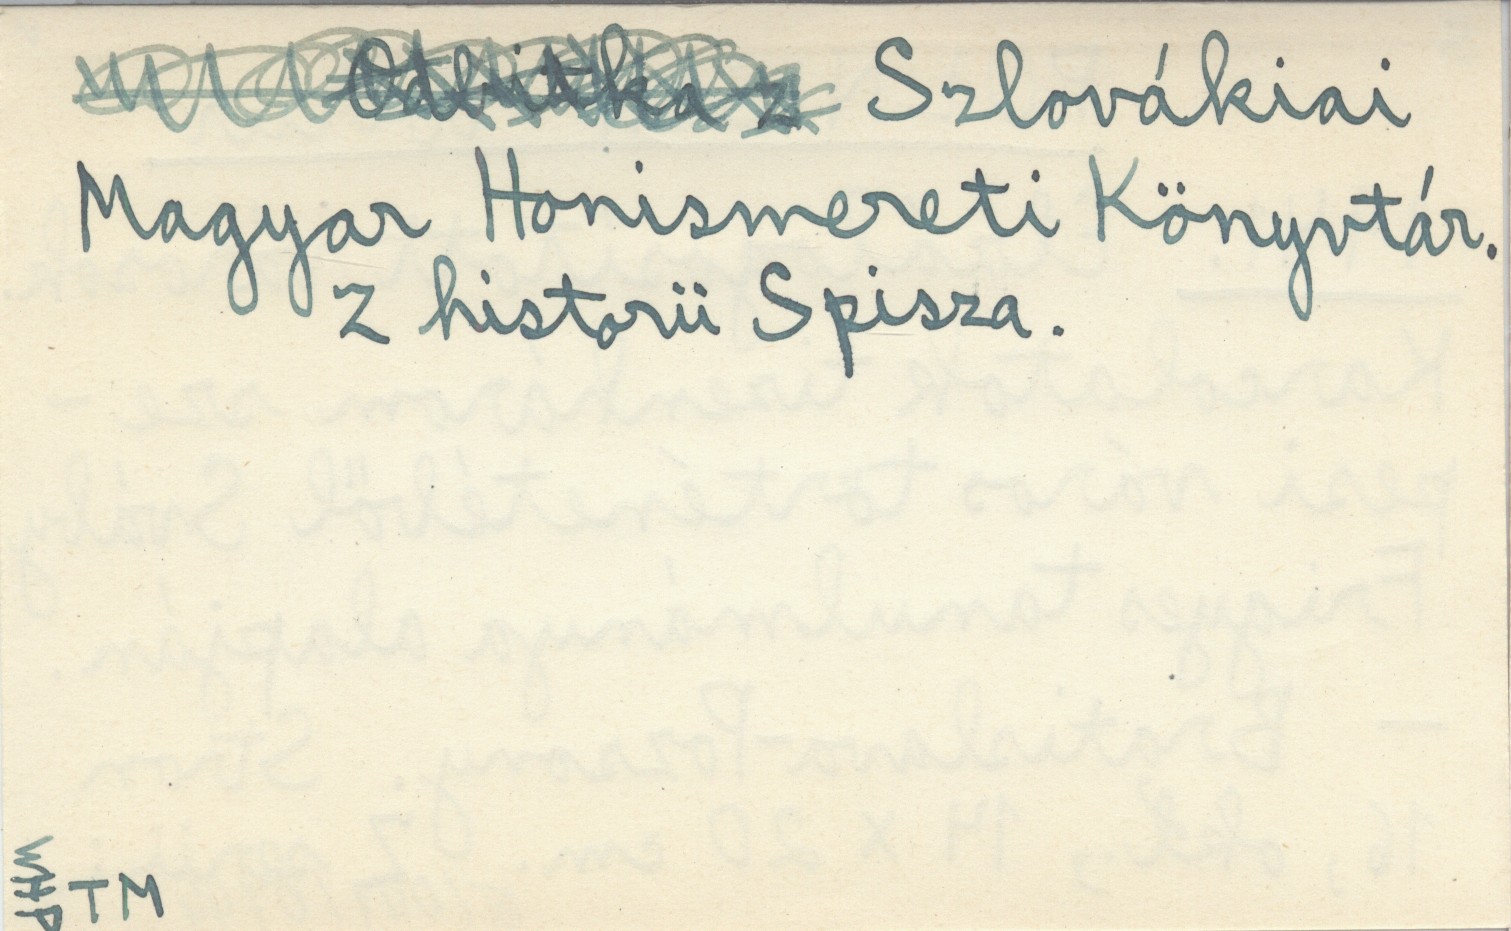 Odbitka z Szlovákiai
Magyar Honismereti Könyvtár.
Z historii Spisza.
WHP
TM